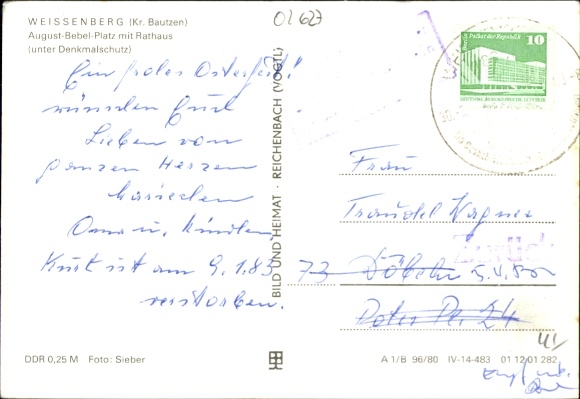 WEISSENBERG (Kr. Bautzen)
August-Bebel-Platz mit Rathaus
(unter Denkmalschutz)
01623
Ein frohes Osterfest!
wünschen Euch
Lieben von
ganzen Herzen
Mariechen
Oma u. Kinder
Kurt ist am 9.1.83
verstorben.
DDR 0,25 M Foto: Sieber
BILD UND HEIMAT · REICHENBACH (VOGTL)
Berlin Palast der Republik
10
DEUTSCHE DEMOKRATISCHE REPUBLIK
Frau
Traudel Wagner
Zurück
73 Döbeln
Peter
24
A 1/B 96/80 IV-14-483 01 12 01 282